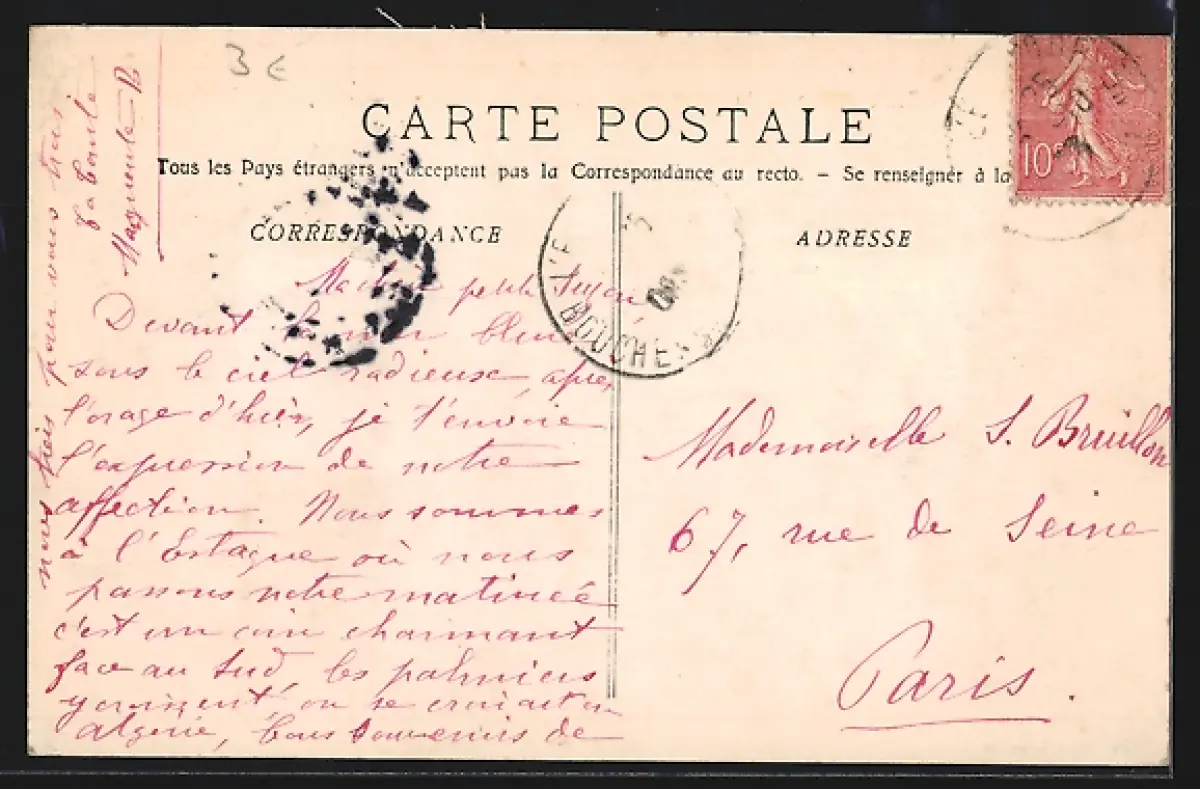 3 €
CARTE POSTALE
Tous les Pays étrangers n'acceptent pas la Correspondance au recto. – Se renseigner à la
CORRESPONDANCE
ADRESSE
10c
BOUCHES
Ma chère petite
Devant la mer bleue
sous le ciel radieuse, après
l'orage d'hier, je t'envoie
l'expression de notre
affection. Nous sommes
à l'Estaque où nous
passons notre matinée
c'est un coin charmant
face au Sud, les palmiers
y croissent, on se croirait en
Algérie, bons souvenirs de
nous trois pour vous tous
Marguerite B.
Mademoiselle S. Bruillon
67, rue de Seine
Paris.